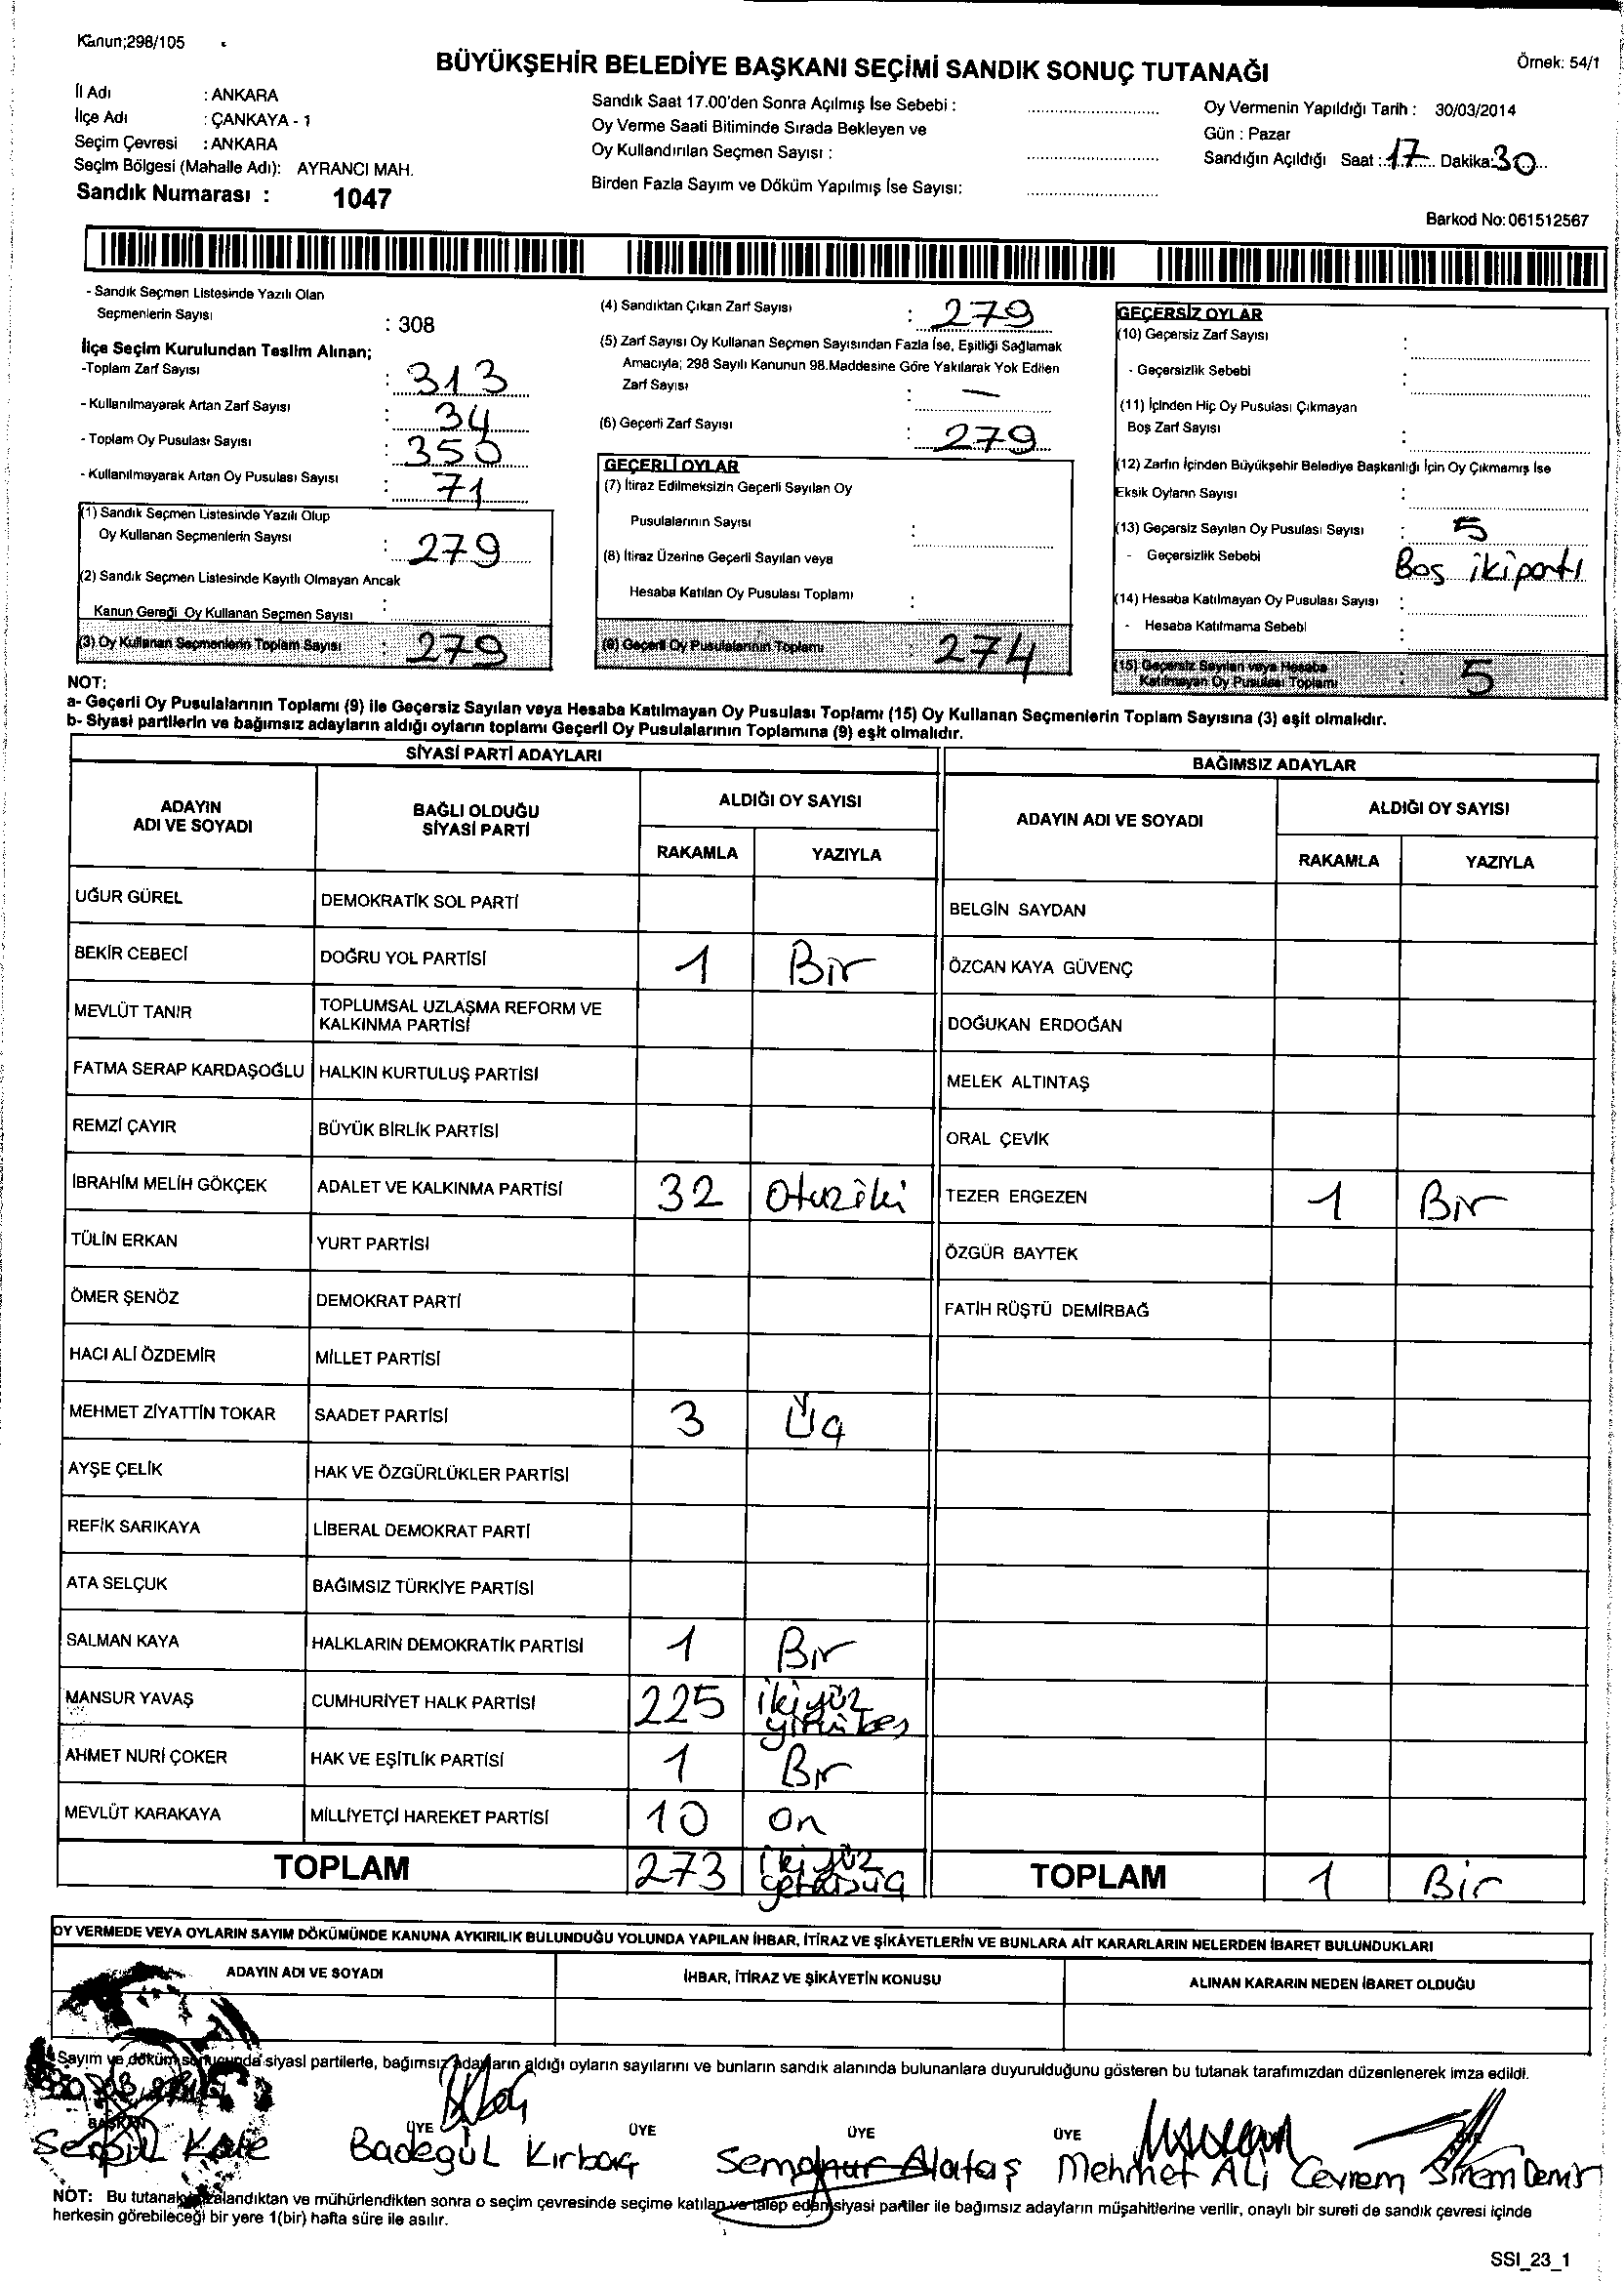 Kanun;298/105
BÜYÜKŞEHİR BELEDİYE BAŞKANI SEÇİMİ SANDIK SONUÇ TUTANAĞI
Örnek: 54/1
İl Adı : ANKARA
İlçe Adı : ÇANKAYA - 1
Seçim Çevresi : ANKARA
Seçim Bölgesi (Mahalle Adı): AYRANCI MAH.
Sandık Numarası : 1047
Sandık Saat 17.00'den Sonra Açılmış İse Sebebi :
Oy Verme Saati Bitiminde Sırada Bekleyen ve
Oy Kullandırılan Seçmen Sayısı :
Birden Fazla Sayım ve Döküm Yapılmış İse Sayısı:
Oy Vermenin Yapıldığı Tarih : 30/03/2014
Gün : Pazar
Sandığın Açıldığı Saat : 17 Dakika: 30
Barkod No: 061512567
- Sandık Seçmen Listesinde Yazılı Olan
Seçmenlerin Sayısı : 308
İlçe Seçim Kurulundan Teslim Alınan;
-Toplam Zarf Sayısı : 313
- Kullanılmayarak Artan Zarf Sayısı : 34
- Toplam Oy Pusulası Sayısı : 350
- Kullanılmayarak Artan Oy Pusulası Sayısı : 71
(1) Sandık Seçmen Listesinde Yazılı Olup
Oy Kullanan Seçmenlerin Sayısı : 279
(2) Sandık Seçmen Listesinde Kayıtlı Olmayan Ancak
Kanun Gereği Oy Kullanan Seçmen Sayısı :
(3) Oy Kullanan Seçmenlerin Toplam Sayısı : 279
(4) Sandıktan Çıkan Zarf Sayısı : 279
(5) Zarf Sayısı Oy Kullanan Seçmen Sayısından Fazla İse, Eşitliği Sağlamak
Amacıyla; 298 Sayılı Kanunun 98.Maddesine Göre Yakılarak Yok Edilen
Zarf Sayısı : —
(6) Geçerli Zarf Sayısı : 279
GEÇERLİ OYLAR
(7) İtiraz Edilmeksizin Geçerli Sayılan Oy
Pusulalarının Sayısı :
(8) İtiraz Üzerine Geçerli Sayılan veya
Hesaba Katılan Oy Pusulası Toplamı :
(9) Geçerli Oy Pusulalarının Toplamı : 274
GEÇERSİZ OYLAR
(10) Geçersiz Zarf Sayısı :
- Geçersizlik Sebebi :
(11) İçinden Hiç Oy Pusulası Çıkmayan
Boş Zarf Sayısı :
(12) Zarfın İçinden Büyükşehir Belediye Başkanlığı İçin Oy Çıkmamış İse
Eksik Oyların Sayısı :
(13) Geçersiz Sayılan Oy Pusulası Sayısı : 5
- Geçersizlik Sebebi Boş iki parti
(14) Hesaba Katılmayan Oy Pusulası Sayısı :
- Hesaba Katılmama Sebebi :
(15) Geçersiz Sayılan veya Hesaba
Katılmayan Oy Pusulası Toplamı : 5
NOT:
a- Geçerli Oy Pusulalarının Toplamı (9) ile Geçersiz Sayılan veya Hesaba Katılmayan Oy Pusulası Toplamı (15) Oy Kullanan Seçmenlerin Toplam Sayısına (3) eşit olmalıdır.
b- Siyasi partilerin ve bağımsız adayların aldığı oyların toplamı Geçerli Oy Pusulalarının Toplamına (9) eşit olmalıdır.
SİYASİ PARTİ ADAYLARI
ADAYIN ADI VE SOYADI
BAĞLI OLDUĞU SİYASİ PARTİ
ALDIĞI OY SAYISI
RAKAMLA YAZIYLA
UĞUR GÜREL DEMOKRATİK SOL PARTİ
BEKİR CEBECİ DOĞRU YOL PARTİSİ 1 Bir
MEVLÜT TANIR TOPLUMSAL UZLAŞMA REFORM VE
KALKINMA PARTİSİ
FATMA SERAP KARDAŞOĞLU HALKIN KURTULUŞ PARTİSİ
REMZİ ÇAYIR BÜYÜK BİRLİK PARTİSİ
İBRAHİM MELİH GÖKÇEK ADALET VE KALKINMA PARTİSİ 32 Otuziki
TÜLİN ERKAN YURT PARTİSİ
ÖMER ŞENÖZ DEMOKRAT PARTİ
HACI ALİ ÖZDEMİR MİLLET PARTİSİ
MEHMET ZİYATTİN TOKAR SAADET PARTİSİ 3 Üç
AYŞE ÇELİK HAK VE ÖZGÜRLÜKLER PARTİSİ
REFİK SARIKAYA LİBERAL DEMOKRAT PARTİ
ATA SELÇUK BAĞIMSIZ TÜRKİYE PARTİSİ
SALMAN KAYA HALKLARIN DEMOKRATİK PARTİSİ 1 Bir
MANSUR YAVAŞ CUMHURİYET HALK PARTİSİ 225 ikiyüz
yirmibeş
AHMET NURİ ÇOKER HAK VE EŞİTLİK PARTİSİ 1 Bir
MEVLÜT KARAKAYA MİLLİYETÇİ HAREKET PARTİSİ 10 On
TOPLAM 273 ikiyüz
yetmişüç
BAĞIMSIZ ADAYLAR
ADAYIN ADI VE SOYADI
ALDIĞI OY SAYISI
RAKAMLA YAZIYLA
BELGİN SAYDAN
ÖZCAN KAYA GÜVENÇ
DOĞUKAN ERDOĞAN
MELEK ALTINTAŞ
ORAL ÇEVİK
TEZER ERGEZEN 1 Bir
ÖZGÜR BAYTEK
FATİH RÜŞTÜ DEMİRBAĞ
TOPLAM 1 Bir
OY VERMEDE VEYA OYLARIN SAYIM DÖKÜMÜNDE KANUNA AYKIRILIK BULUNDUĞU YOLUNDA YAPILAN İHBAR, İTİRAZ VE ŞİKÂYETLERİN VE BUNLARA AİT KARARLARIN NELERDEN İBARET BULUNDUKLARI
ADAYIN ADI VE SOYADI İHBAR, İTİRAZ VE ŞİKÂYETİN KONUSU ALINAN KARARIN NEDEN İBARET OLDUĞU
Sayım ve döküm sonucunda siyasi partilerle, bağımsız adayların aldığı oyların sayılarını ve bunların sandık alanında bulunanlara duyurulduğunu gösteren bu tutanak tarafımızdan düzenlenerek imza edildi.
BAŞKAN ÜYE ÜYE ÜYE ÜYE
Serpil Kale Badegül Kırbaç Semanur Alataş Mehmet Ali Cevrem Sinem Demir
NOT: Bu tutanak imzalandıktan ve mühürlendikten sonra o seçim çevresinde seçime katılan ve talep eden siyasi partiler ile bağımsız adayların müşahitlerine verilir, onaylı bir sureti de sandık çevresi içinde
herkesin görebileceği bir yere 1(bir) hafta süre ile asılır.
SSI_23_1